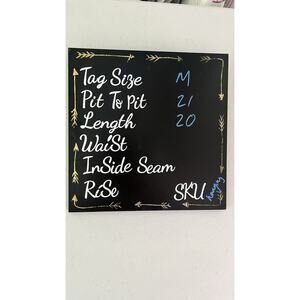 Tag Size M
Pit To Pit 21
Length 20
Waist
Inside Seam
Rise SKU